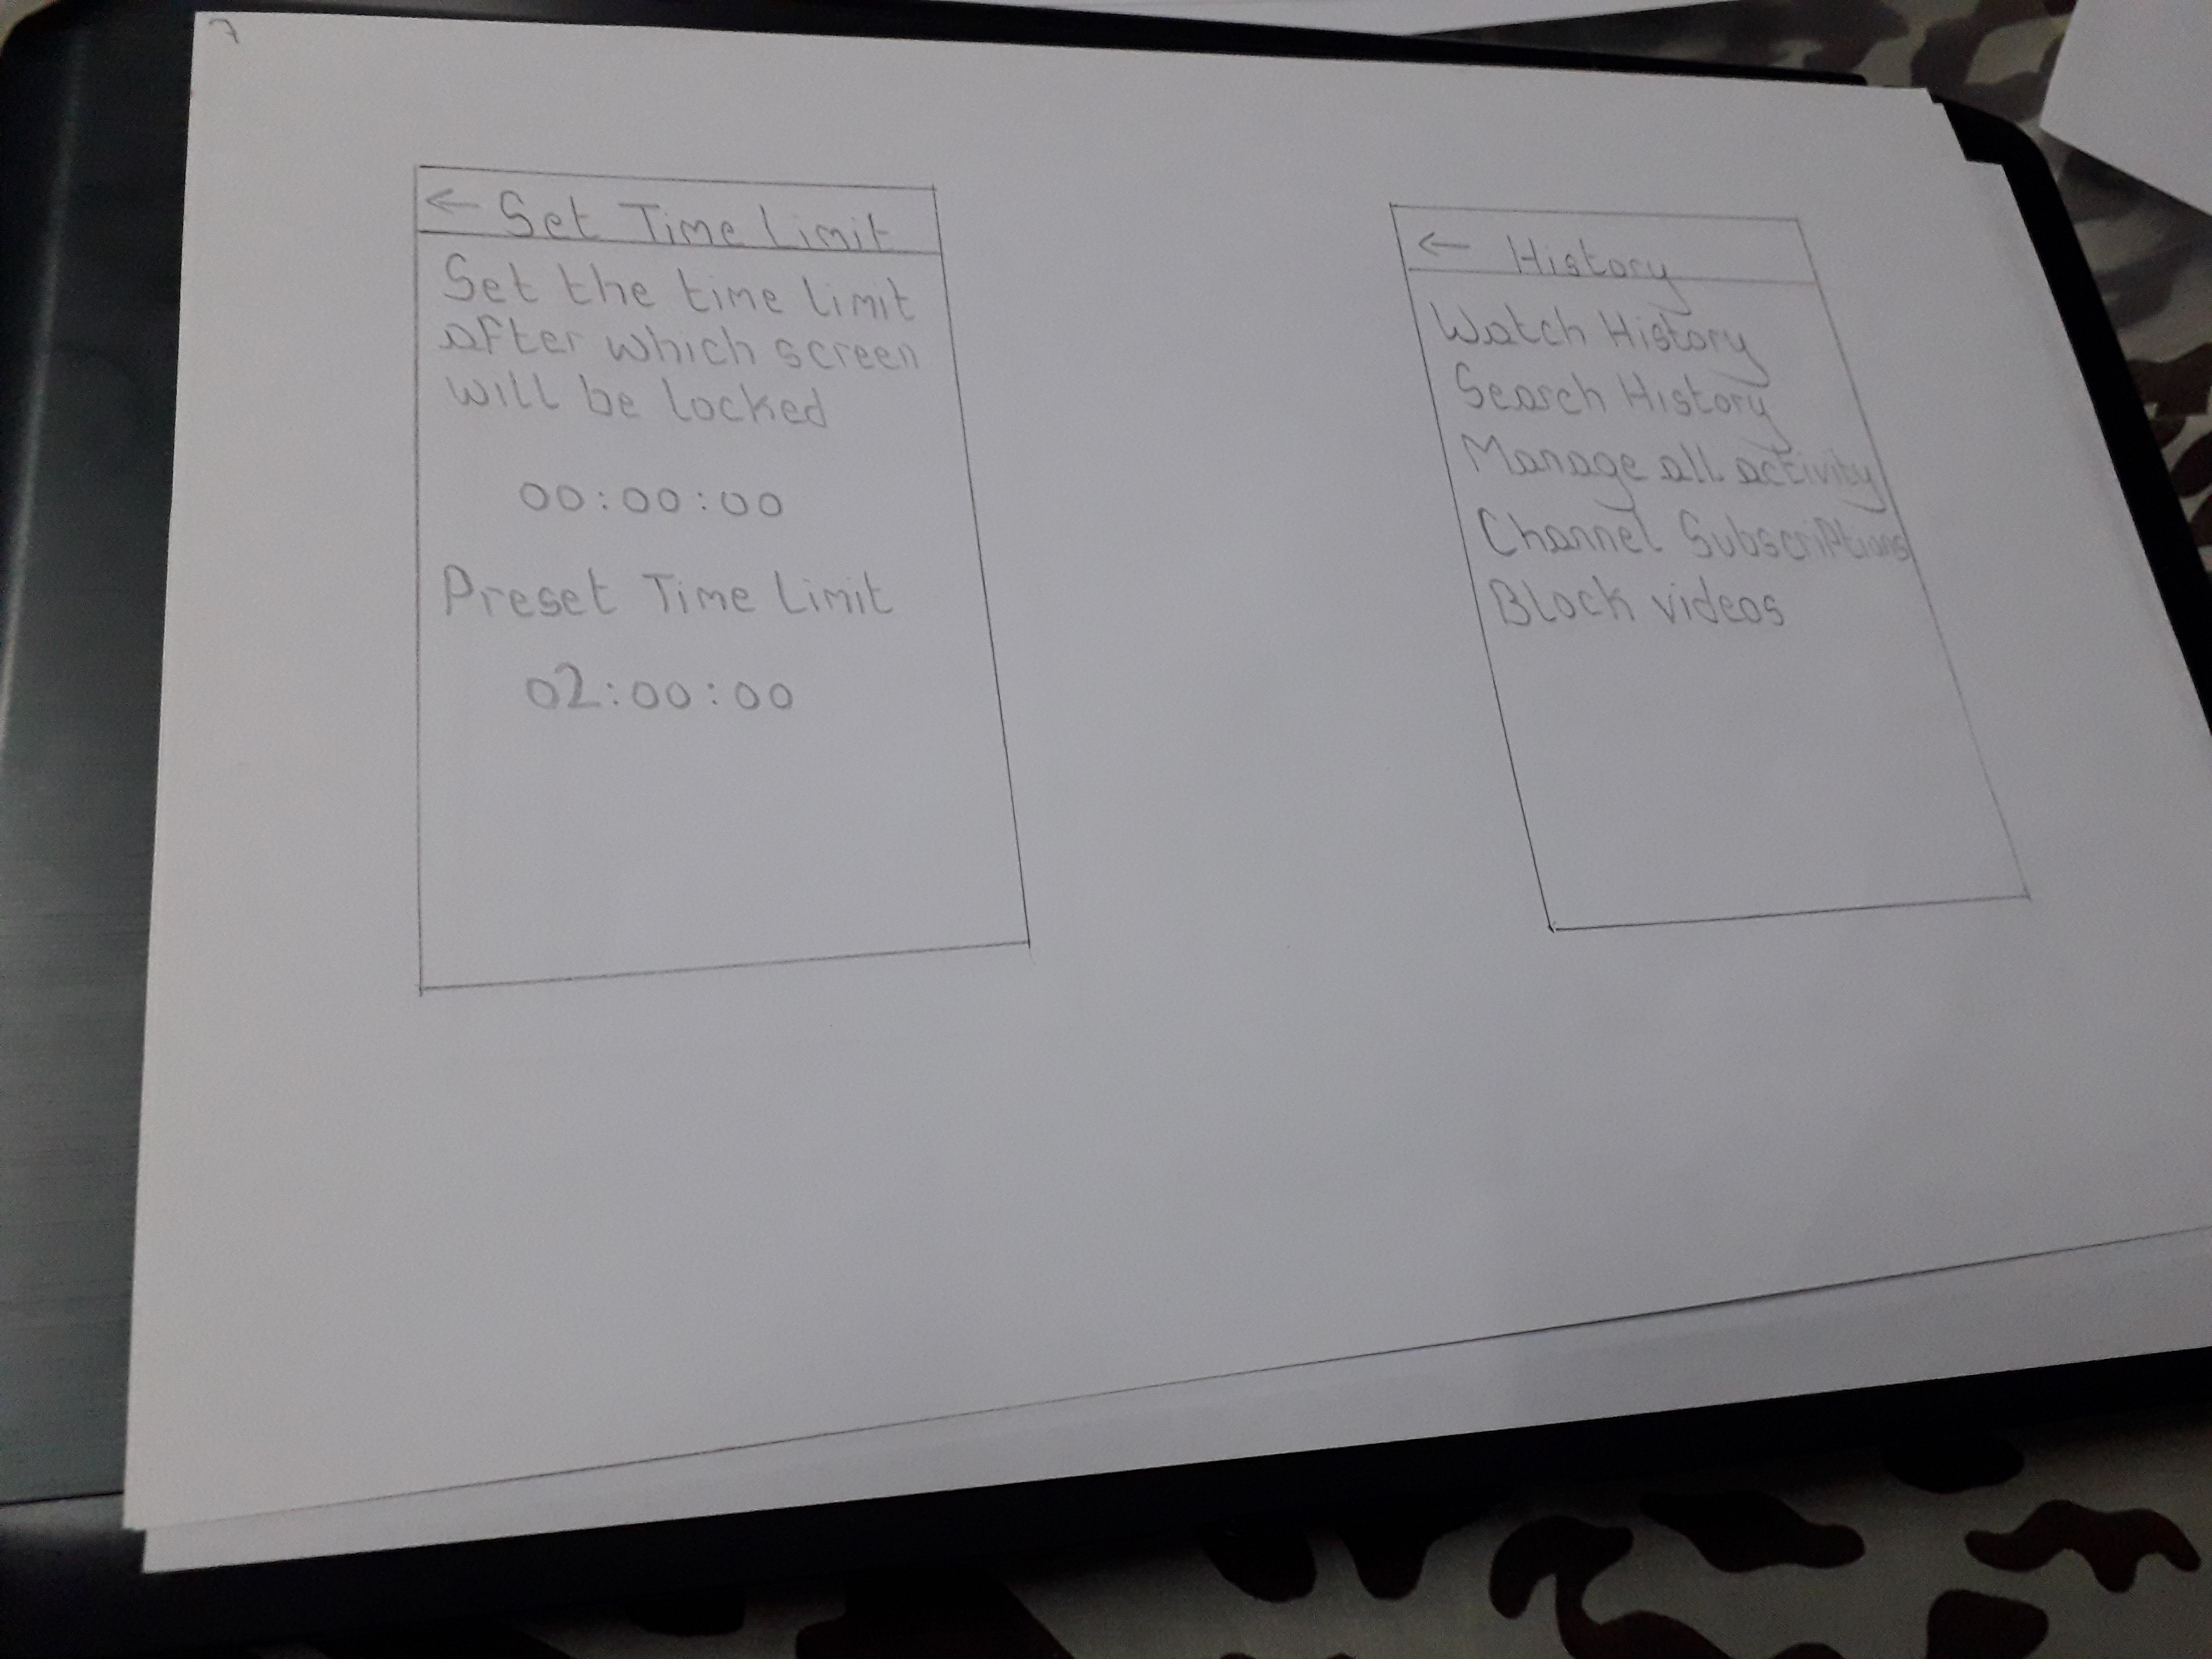 7
← Set Time Limit
Set the time limit
after which screen
will be locked
00:00:00
Preset Time Limit
02:00:00
← History
Watch History
Search History
Manage all activity
Channel Subscriptions
Block videos